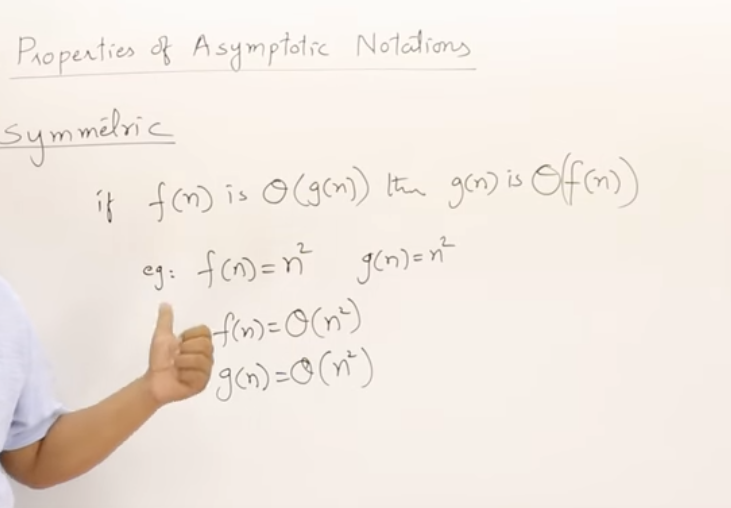 Properties of Asymptotic Notations
Symmetric
if f(n) is Θ(g(n)) then g(n) is Θ(f(n))
eg: f(n)=n² g(n)=n²
f(n)=Θ(n²)
g(n)=Θ(n²)